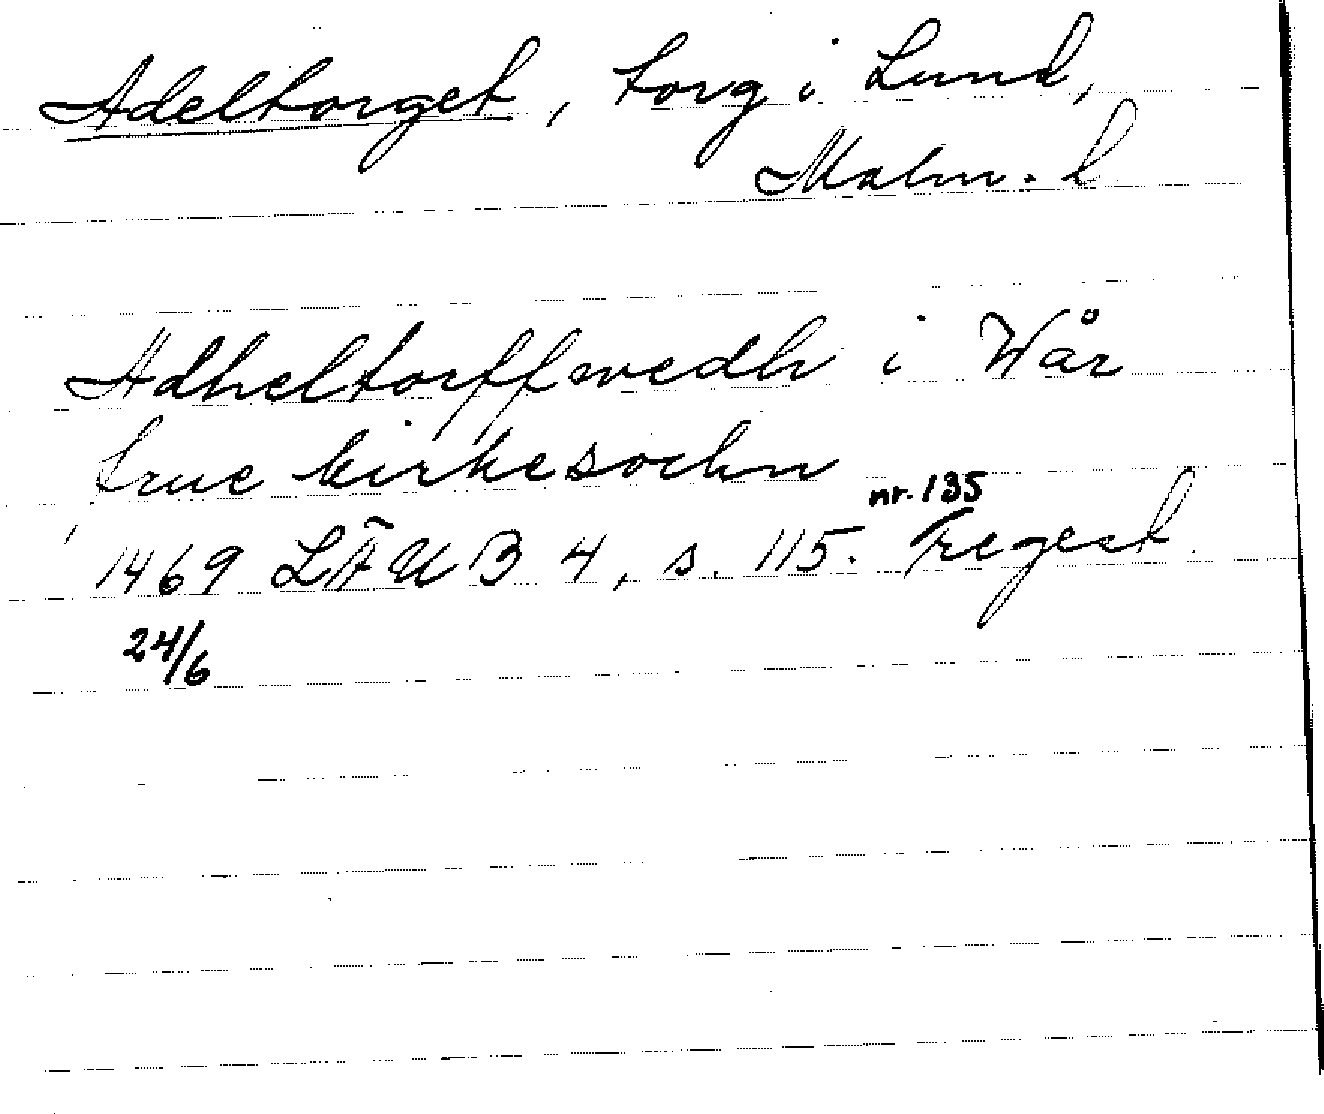 Adeltorget, torg i Lund,
Malm. l
Adheltorffwedh i Wår
frue kirkesochn
nr. 135
1469 LÄUB 4, s. 115. Regest
24/6